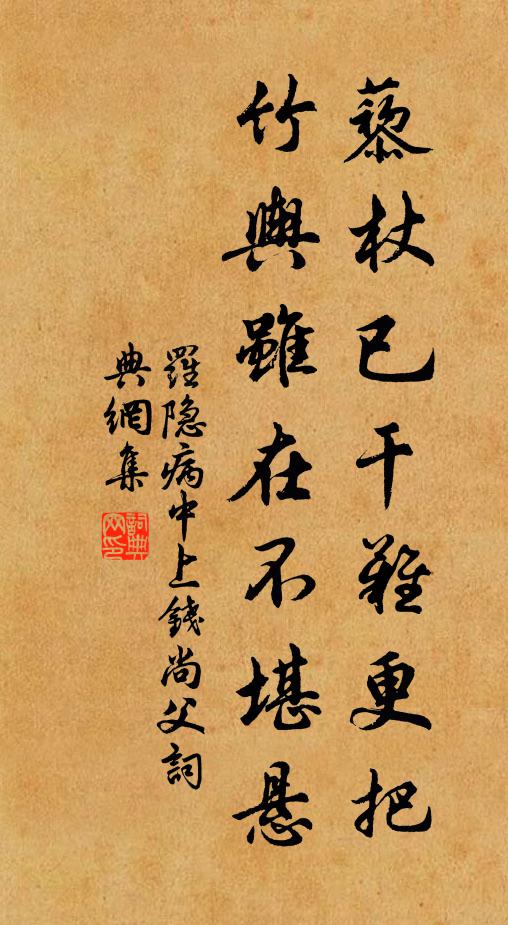 藜杖已干難更把
竹輿雖在不堪懸
羅隐病中上錢尚父詞
典網集
詞典网印